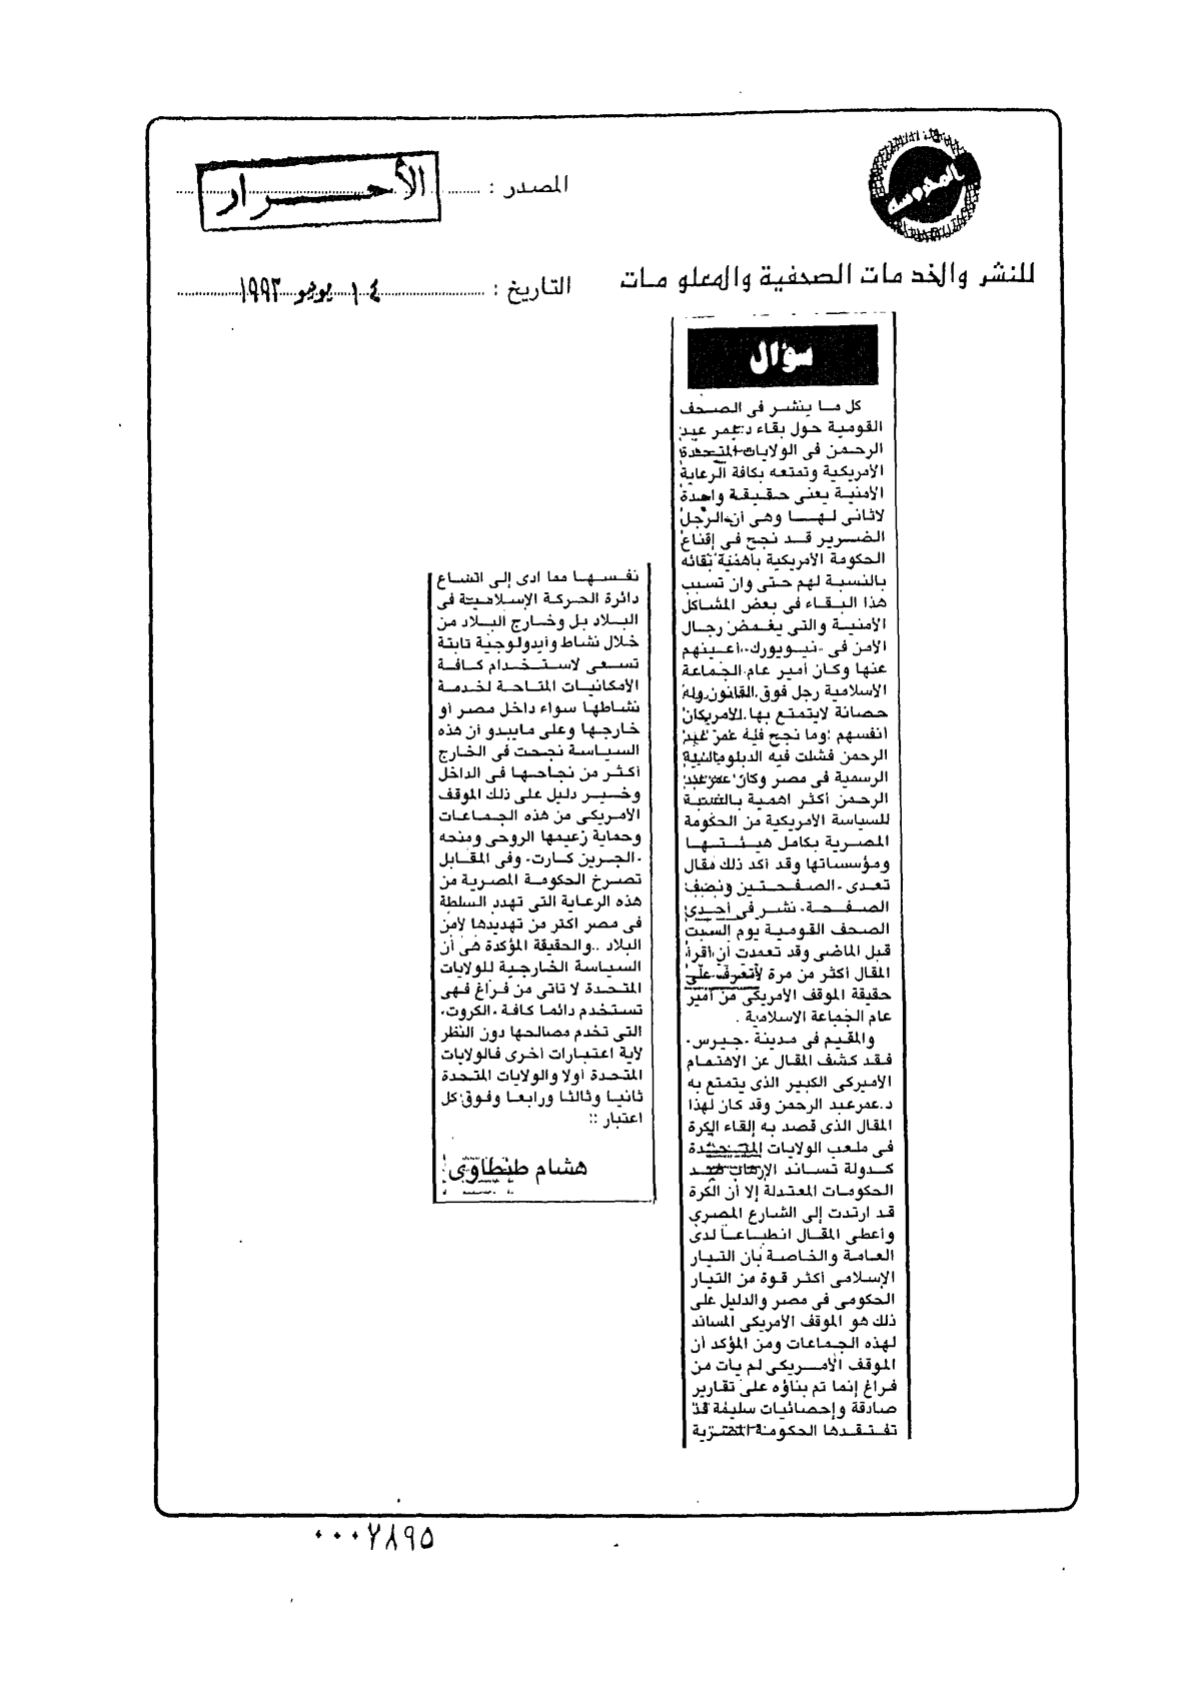 بالمحروسة
للنشر والخدمات الصحفية والمعلومات
المصدر : الأحرار
التاريخ : ١٤ يونيو ١٩٩٣
سؤال
كل ما ينشر فى الصحف
القومية حول بقاء د.عمر عبد
الرحمن فى الولايات المتحدة
الأمريكية وتمتعه بكافة الرعاية
الأمنية يعنى حقيقة واحدة
لاثانى لها وهى أن الرجل
الضرير قد نجح فى إقناع
الحكومة الأمريكية بأهمية بقائه
بالنسبة لهم حتى وان تسبب
هذا البقاء فى بعض المشاكل
الأمنية والتى يغمض رجال
الأمن فى «نيويورك» أعينهم
عنها وكان أمير عام الجماعة
الاسلامية رجل فوق القانون وله
حصانة لايتمتع بها الأمريكان
انفسهم وما نجح فيه عمر عبد
الرحمن فشلت فيه الدبلوماسية
الرسمية فى مصر وكان عمر عبد
الرحمن أكثر اهمية بالنسبة
للسياسة الأمريكية من الحكومة
المصرية بكامل هيئتها
ومؤسساتها وقد أكد ذلك مقال
تعدى «الصفحتين ونصف
الصفحة» نشر فى أحدى
الصحف القومية يوم السبت
قبل الماضى وقد تعمدت أن أقرأ
المقال أكثر من مرة لأتعرف على
حقيقة الموقف الأمريكى من أمير
عام الجماعة الاسلامية .
والمقيم فى مدينة «جيرس»
فقد كشف المقال عن الاهتمام
الأميركى الكبير الذى يتمتع به
د.عمر عبد الرحمن وقد كان لهذا
المقال الذى قصد به إلقاء الكرة
فى ملعب الولايات المتحدة
كدولة تساند الإرهاب ضد
الحكومات المعتدلة إلا أن الكرة
قد ارتدت إلى الشارع المصرى
وأعطى المقال انطباعاً لدى
العامة والخاصة بأن التيار
الإسلامى أكثر قوة من التيار
الحكومى فى مصر والدليل على
ذلك هو الموقف الأمريكى المساند
لهذه الجماعات ومن المؤكد أن
الموقف الأمريكى لم يأت من
فراغ إنما تم بناؤه على تقارير
صادقة وإحصائيات سليمة قد
تفتقدها الحكومة المصرية
نفسها مما ادى إلى اتساع
دائرة الحركة الإسلامية فى
البلاد بل وخارج البلاد من
خلال نشاط وأيدولوجية ثابتة
تسعى لاستخدام كافة
الامكانيات المتاحة لخدمة
نشاطها سواء داخل مصر أو
خارجها وعلى مايبدو أن هذه
السياسة نجحت فى الخارج
أكثر من نجاحها فى الداخل
وخير دليل على ذلك الموقف
الأمريكى من هذه الجماعات
وحماية زعيمها الروحى ومنحه
«الجرين كارت» وفى المقابل
تصرخ الحكومة المصرية من
هذه الرعاية التى تهدد السلطة
فى مصر اكثر من تهديدها لأمن
البلاد ..والحقيقة المؤكدة هى أن
السياسة الخارجية للولايات
المتحدة لا تاتى من فراغ فهى
تستخدم دائما كافة «الكروت»
التى تخدم مصالحها دون النظر
لاية اعتبارات أخرى فالولايات
المتحدة أولا والولايات المتحدة
ثانيا وثالثا ورابعا وفوق كل
اعتبار ::
هشام طنطاوى
٠٠٠٧٨٩٥